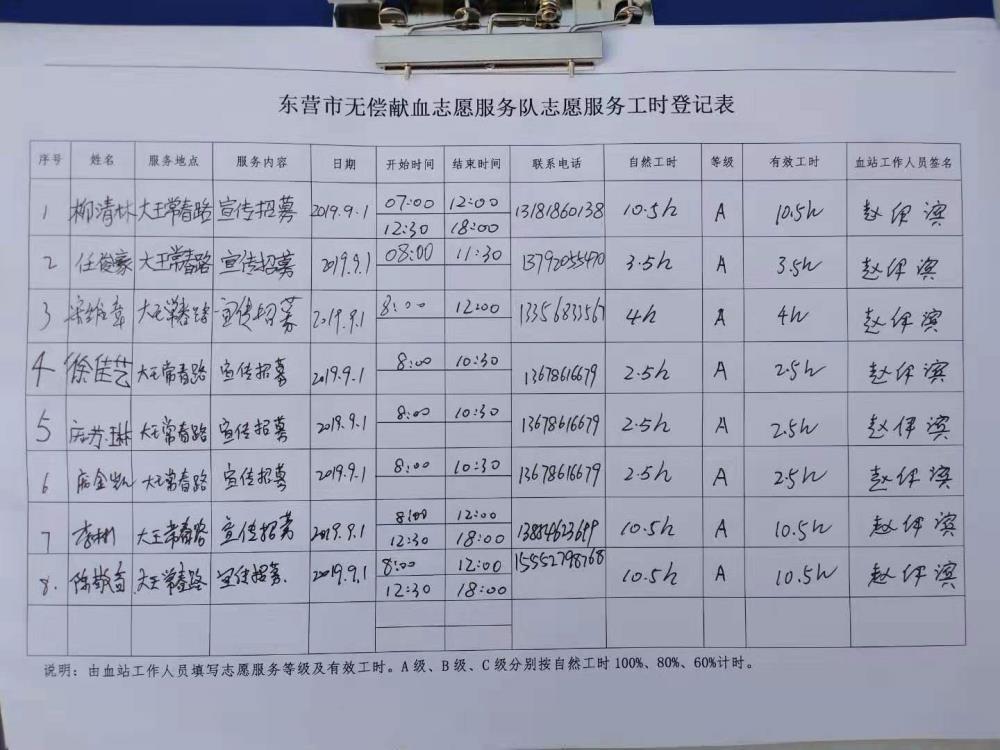 东营市无偿献血志愿服务队志愿服务工时登记表
序号 姓名 服务地点 服务内容 日期 开始时间 结束时间 联系电话 自然工时 等级 有效工时 血站工作人员签名
1 柳清林 大王常春路 宣传招募 2019.9.1 07:00 12:00 13181860138 10.5h A 10.5h 赵伊滨
12:30 18:00
2 任俊豪 大王常春路 宣传招募 2019.9.1 08:00 11:30 13792055490 3.5h A 3.5h 赵伊滨
3 宋维章 大王常春路 宣传招募 2019.9.1 8:00 12:00 13356833567 4h A 4h 赵伊滨
4 徐佳艺 大王常春路 宣传招募 2019.9.1 8:00 10:30 13678616679 2.5h A 2.5h 赵伊滨
5 大王常春路 宣传招募 2019.9.1 8:00 10:30 13678616679 2.5h A 2.5h 赵伊滨
6 大王常春路 宣传招募 2019.9.1 8:00 10:30 13678616679 2.5h A 2.5h 赵伊滨
7 李彬 大王常春路 宣传招募 2019.9.1 8:00 12:00 10.5h A 10.5h 赵伊滨
12:30 18:00
8. 大王常春路 宣传招募. 2019.9.1 8:00 12:00 15552798768 10.5h A 10.5h 赵伊滨
12:30 18:00
说明：由血站工作人员填写志愿服务等级及有效工时。A级、B级、C级分别按自然工时100%、80%、60%计时。